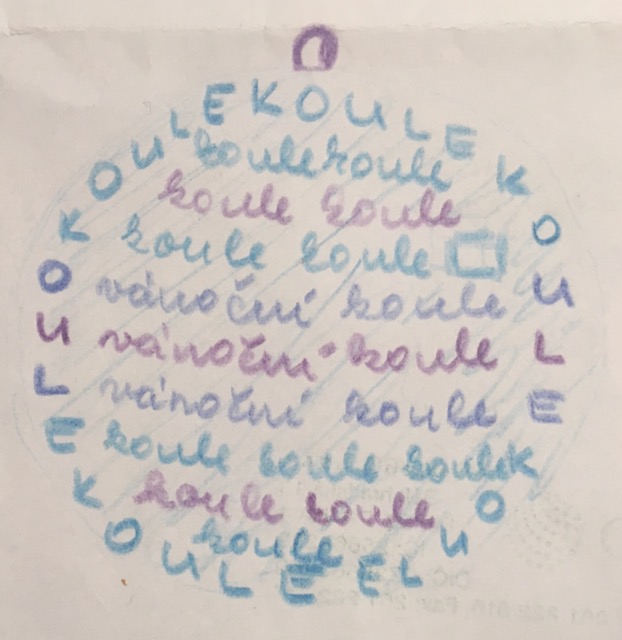 KOULEKOULEKOULEKOULEKOULEKOULE
koulekoule
koule koule
koule koule
vánoční koule
vánoční koule
vánoční koule
koule koule koule
koule koule
koule